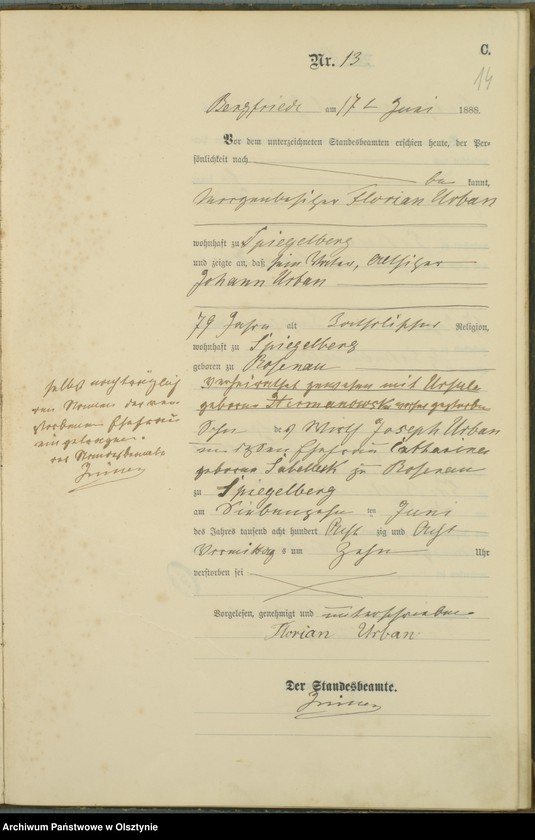 C.
Nr. 13
14
Bergfriede am 17t Juni 1888.
Vor dem unterzeichneten Standesbeamten erschien heute, der Per-
sönlichkeit nach
be kannt,
Florian Urban
wohnhaft zu Spiegelberg
und zeigte an, daß sein Vater, Altsitzer
Johann Urban
79 Jahre alt katholischer Religion,
wohnhaft zu Spiegelberg
geboren zu Rosenau
verheirathet gewesen mit Ursula
geborne Hermanowski
Sohn Joseph Urban
und dessen Ehefrau Catharina
geborne zu Rosenau
zu Spiegelberg
am Siebenzehn ten Juni
des Jahres tausend acht hundert Acht zig und Acht
Vormittag s um Zehn Uhr
verstorben sei
Vorgelesen, genehmigt und unterschrieben
Florian Urban
Der Standesbeamte.
den Namen der ver-
storbenen Ehefrau
eingetragen.
Der Standesbeamte
Archiwum Państwowe w Olsztynie